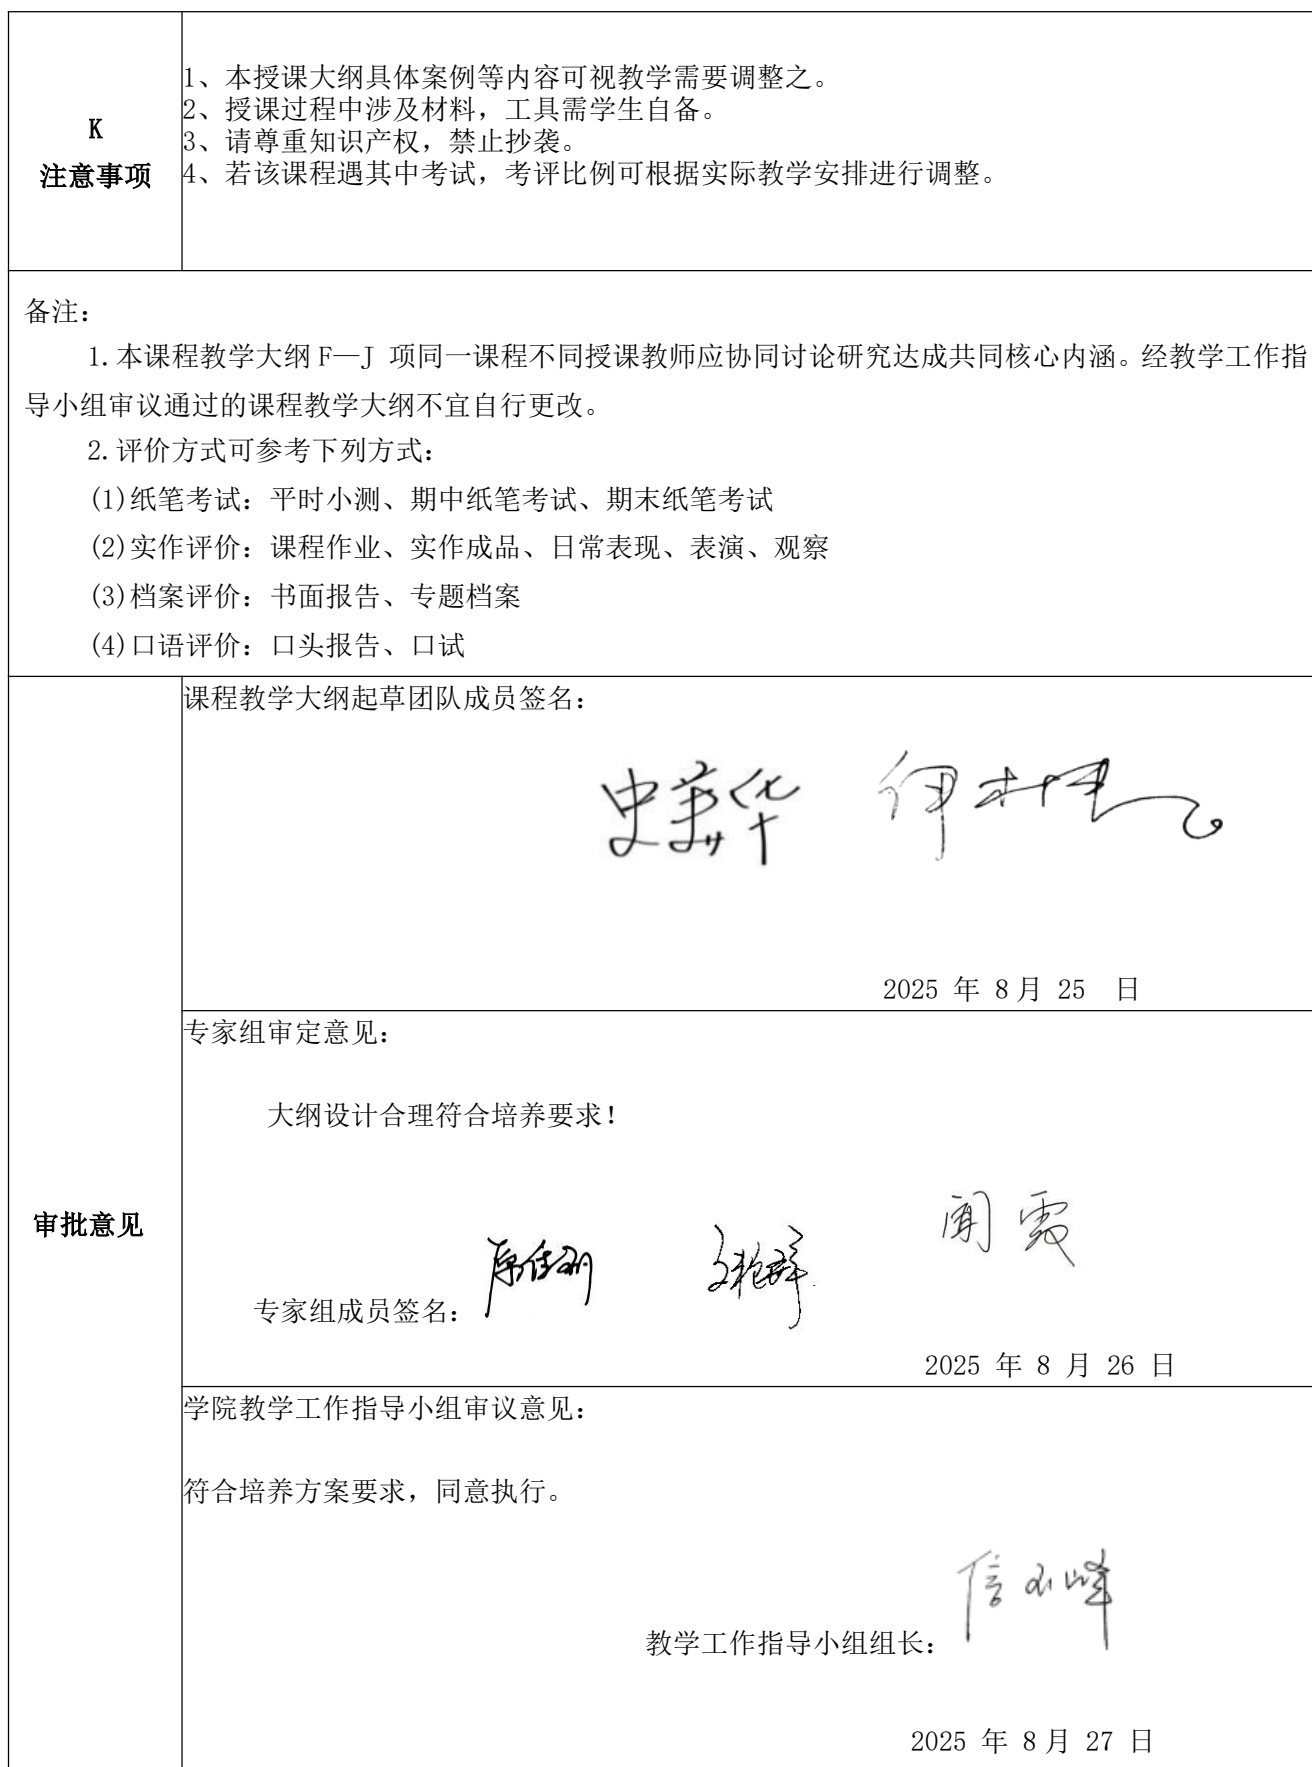 K
注意事项
1、本授课大纲具体案例等内容可视教学需要调整之。
2、授课过程中涉及材料，工具需学生自备。
3、请尊重知识产权，禁止抄袭。
4、若该课程遇其中考试，考评比例可根据实际教学安排进行调整。
备注：
1.本课程教学大纲 F—J 项同一课程不同授课教师应协同讨论研究达成共同核心内涵。经教学工作指
导小组审议通过的课程教学大纲不宜自行更改。
2.评价方式可参考下列方式：
(1)纸笔考试：平时小测、期中纸笔考试、期末纸笔考试
(2)实作评价：课程作业、实作成品、日常表现、表演、观察
(3)档案评价：书面报告、专题档案
(4)口语评价：口头报告、口试
审批意见
课程教学大纲起草团队成员签名：
史美华
2025 年 8月 25 日
专家组审定意见：
大纲设计合理符合培养要求！
闻霞
专家组成员签名：
2025 年 8 月 26 日
学院教学工作指导小组审议意见：
符合培养方案要求，同意执行。
教学工作指导小组组长：
2025 年 8月 27 日